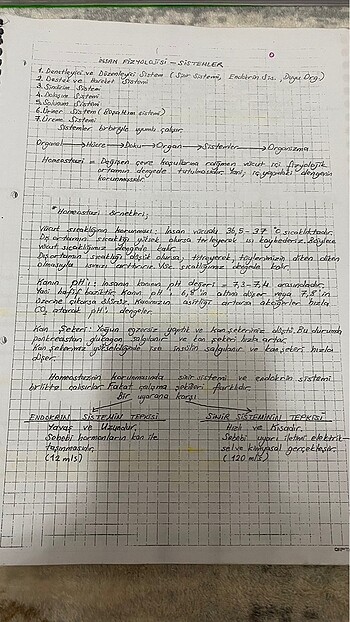 İNSAN FİZYOLOJİSİ - SİSTEMLER
1. Denetleyici ve Düzenleyici Sistem (Sinir Sistemi, Endokrin Sis., Duyu Org)
2. Destek ve Hareket Sistemi
3. Sindirim Sistemi
4. Dolaşım Sistemi
5. Solunum Sistemi
6. Üriner Sistem (Boşaltım sistemi)
7. Üreme Sistemi
Sistemler birbiriyle uyumlu çalışır.
Organel → Hücre → Doku → Organ → Sistemler → Organizma
Homeostazi = Değişen çevre koşullarına rağmen vücut içi fizyolojik
ortamın dengede tutulmasıdır. Yani; iç yapıdaki dengenin
korunmasıdır.
* Homeostazi örnekleri;
Vücut sıcaklığının korunması: İnsan vücudu 36,5 - 37 °C sıcaklıktadır.
Dış ortamın sıcaklığı yüksek olursa terleyerek ısı kaybederiz. Böylece
vücut sıcaklığımız dengede kalır.
Dış ortamın sıcaklığı düşük olursa, titreyerek, tüylerimizin diken diken
olmasıyla ısımızı arttırırız. Vüc. sıcaklığımız dengede kalır.
Kanın pH'ı: İnsanın kanının pH değeri = 7,3 - 7,4 arasındadır.
Yani hafif baziktir. Kanın pH'ı, 6,8'in altına düşer veya 7,8'in
üzerine çıkarsa ölünür. Kanımızın asitliği artarsa akciğerler hızla
CO₂ atarak pH'ı dengeler.
Kan Şekeri: Yoğun egzersiz yaptık ve kan şekerimiz düştü. Bu durumda
pankreastan glukagon salgılanır ve kan şekeri hızla artar.
Kan şekerimiz yükseldiğinde ise insülin salgılanır ve kan şekeri hızla
düşer.
Homeostazinin korunmasında sinir sistemi ve endokrin sistemi
birlikte çalışırlar. Fakat çalışma şekilleri farklıdır.
Bir uyarana karşı
ENDOKRİN SİSTEMİN TEPKİSİ
Yavaş ve Uzundur.
Sebebi hormonların kan ile
taşınmasıdır.
(12 m/s)
SİNİR SİSTEMİNİN TEPKİSİ
Hızlı ve Kısadır.
Sebebi uyarı iletimi elektrik-
sel ve kimyasal gerçekleşir.
(120 m/s)